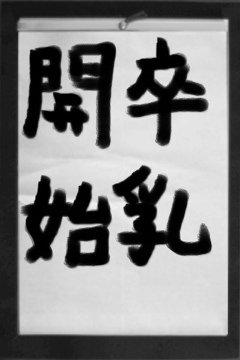 卒乳
開始